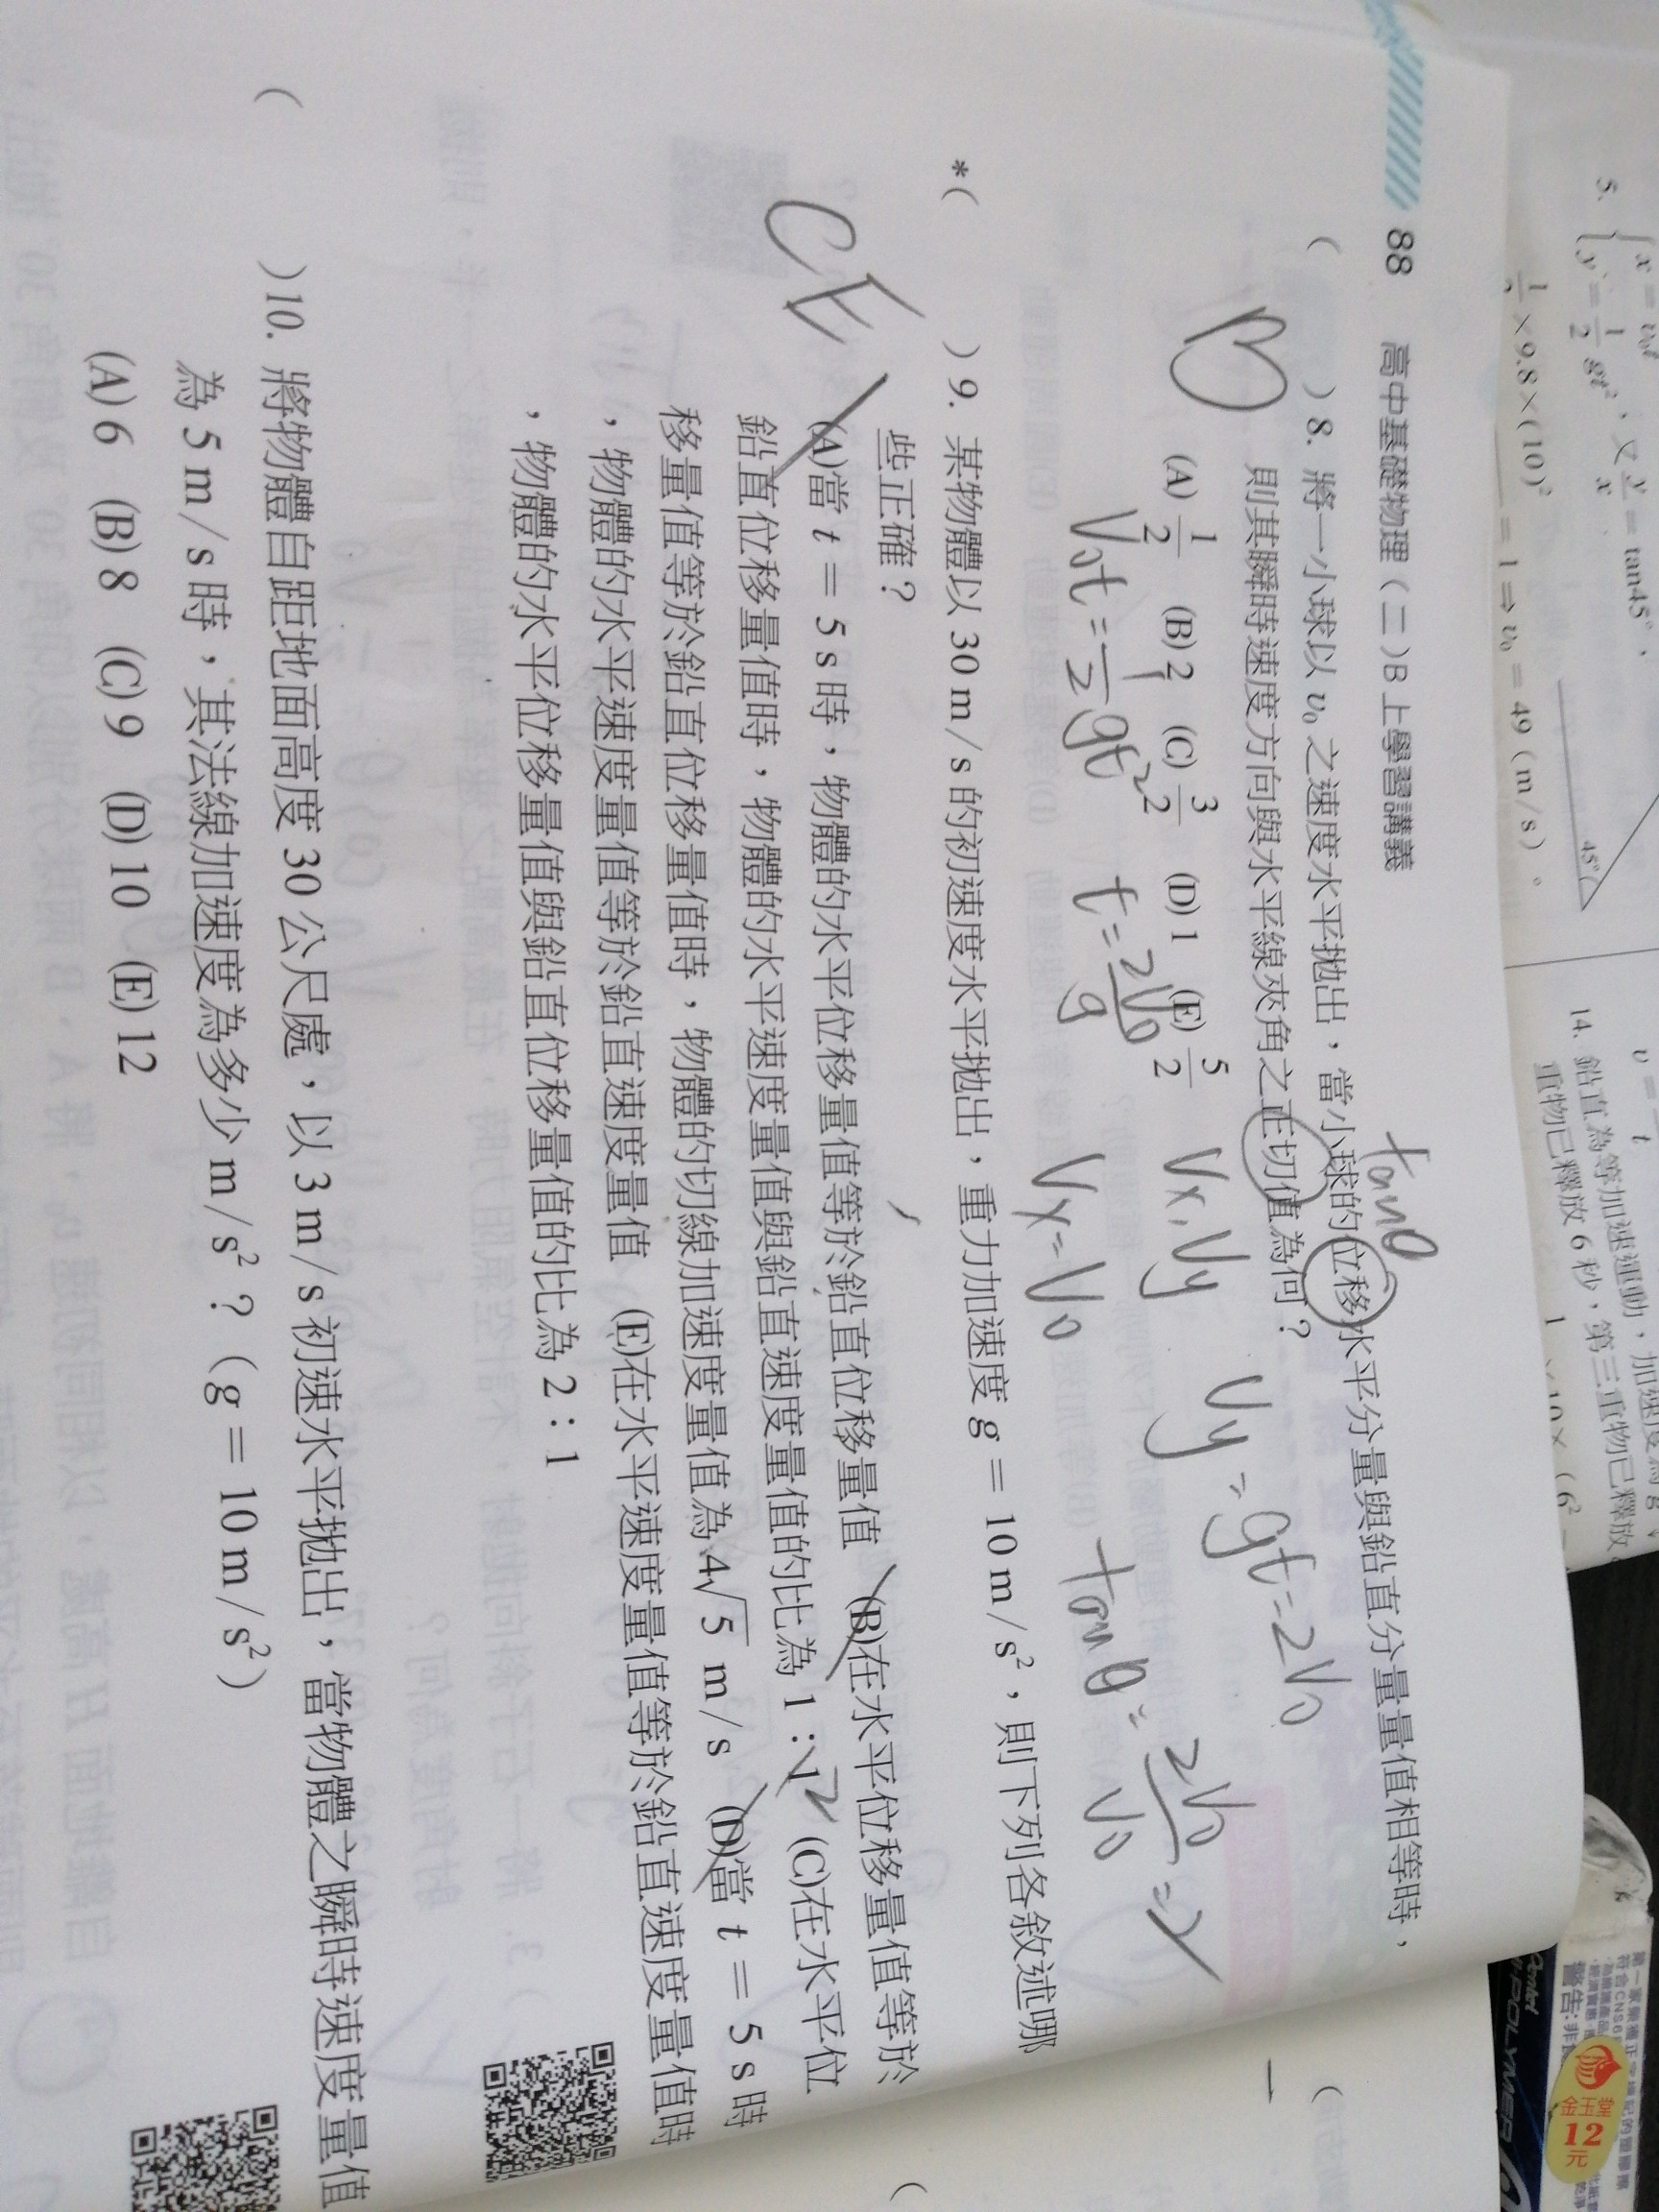 88 高中基礎物理(二)B上學習講義
( )8. 將一小球以 v₀ 之速度水平拋出,當小球的位移水平分量與鉛直分量量值相等時,
則其瞬時速度方向與水平線夾角之正切值為何?
tanθ
(A) 1/2 (B) 2 (C) 3/2 (D) 1 (E) 5/2
B
V₀t = 1/2 gt²
t = 2V₀/g
Vx, Vy
Vx = V₀
Vy = gt = 2V₀
tanθ = 2V₀/V₀ = 2
*( )9. 某物體以 30 m/s 的初速度水平拋出,重力加速度 g = 10 m/s²,則下列各敘述哪
些正確?
CE
(A)當 t = 5 s 時,物體的水平位移量值等於鉛直位移量值 (B)在水平位移量值等於
鉛直位移量值時,物體的水平速度量值與鉛直速度量值的比為 1:1 2 (C)在水平位
移量值等於鉛直位移量值時,物體的切線加速度量值為 4√5 m/s (D)當 t = 5 s 時
,物體的水平速度量值等於鉛直速度量值 (E)在水平速度量值等於鉛直速度量值時
,物體的水平位移量值與鉛直位移量值的比為 2:1
( )10. 將物體自距地面高度 30 公尺處,以 3 m/s 初速水平拋出,當物體之瞬時速度量值
為 5 m/s 時,其法線加速度為多少 m/s²?(g = 10 m/s²)
(A) 6 (B) 8 (C) 9 (D) 10 (E) 12
5. { x = v₀t
y = 1/2 gt² ,又 y/x = tan45°,
×9.8×(10)² = 1 ⇒ v₀ = 49 (m/s)。
45°
14. 鉛直為等加速運動,加速度為 g
重物已釋放 6 秒,第三重物已釋放
Pentel
HI-POLYMER
警告:非
金玉堂
12
元